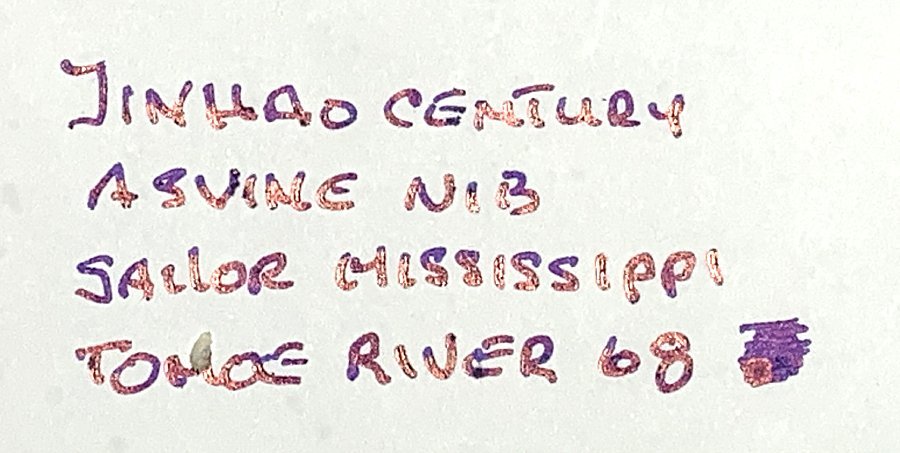 JINHAO CENTURY
ASVINE NIB
SAILOR MISSISSIPPI
TOMOE RIVER 68